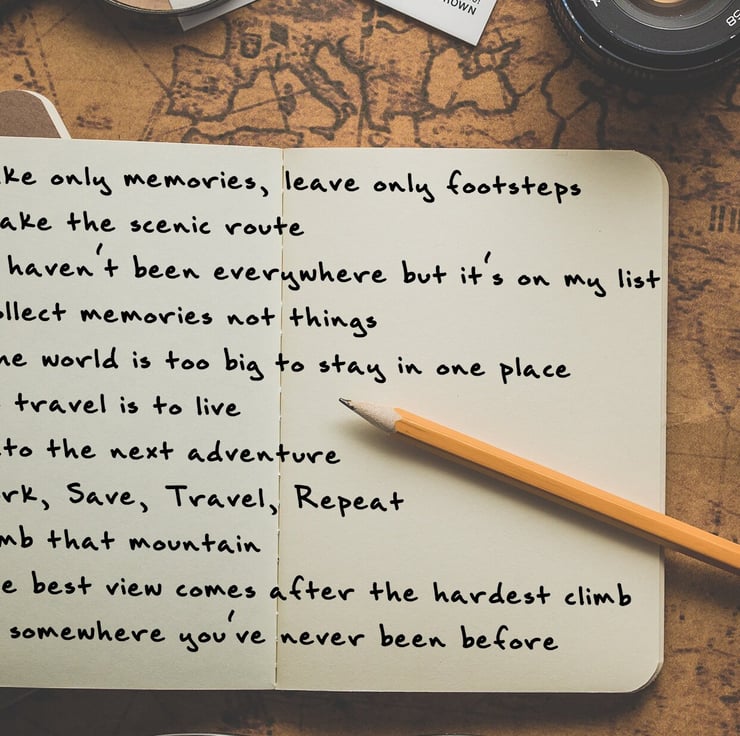 OWN
58
ke only memories, leave only footsteps
ake the scenic route
haven't been everywhere but it's on my list
llect memories not things
he world is too big to stay in one place
travel is to live
to the next adventure
rk, Save, Travel, Repeat
mb that mountain
e best view comes after the hardest climb
somewhere you've never been before